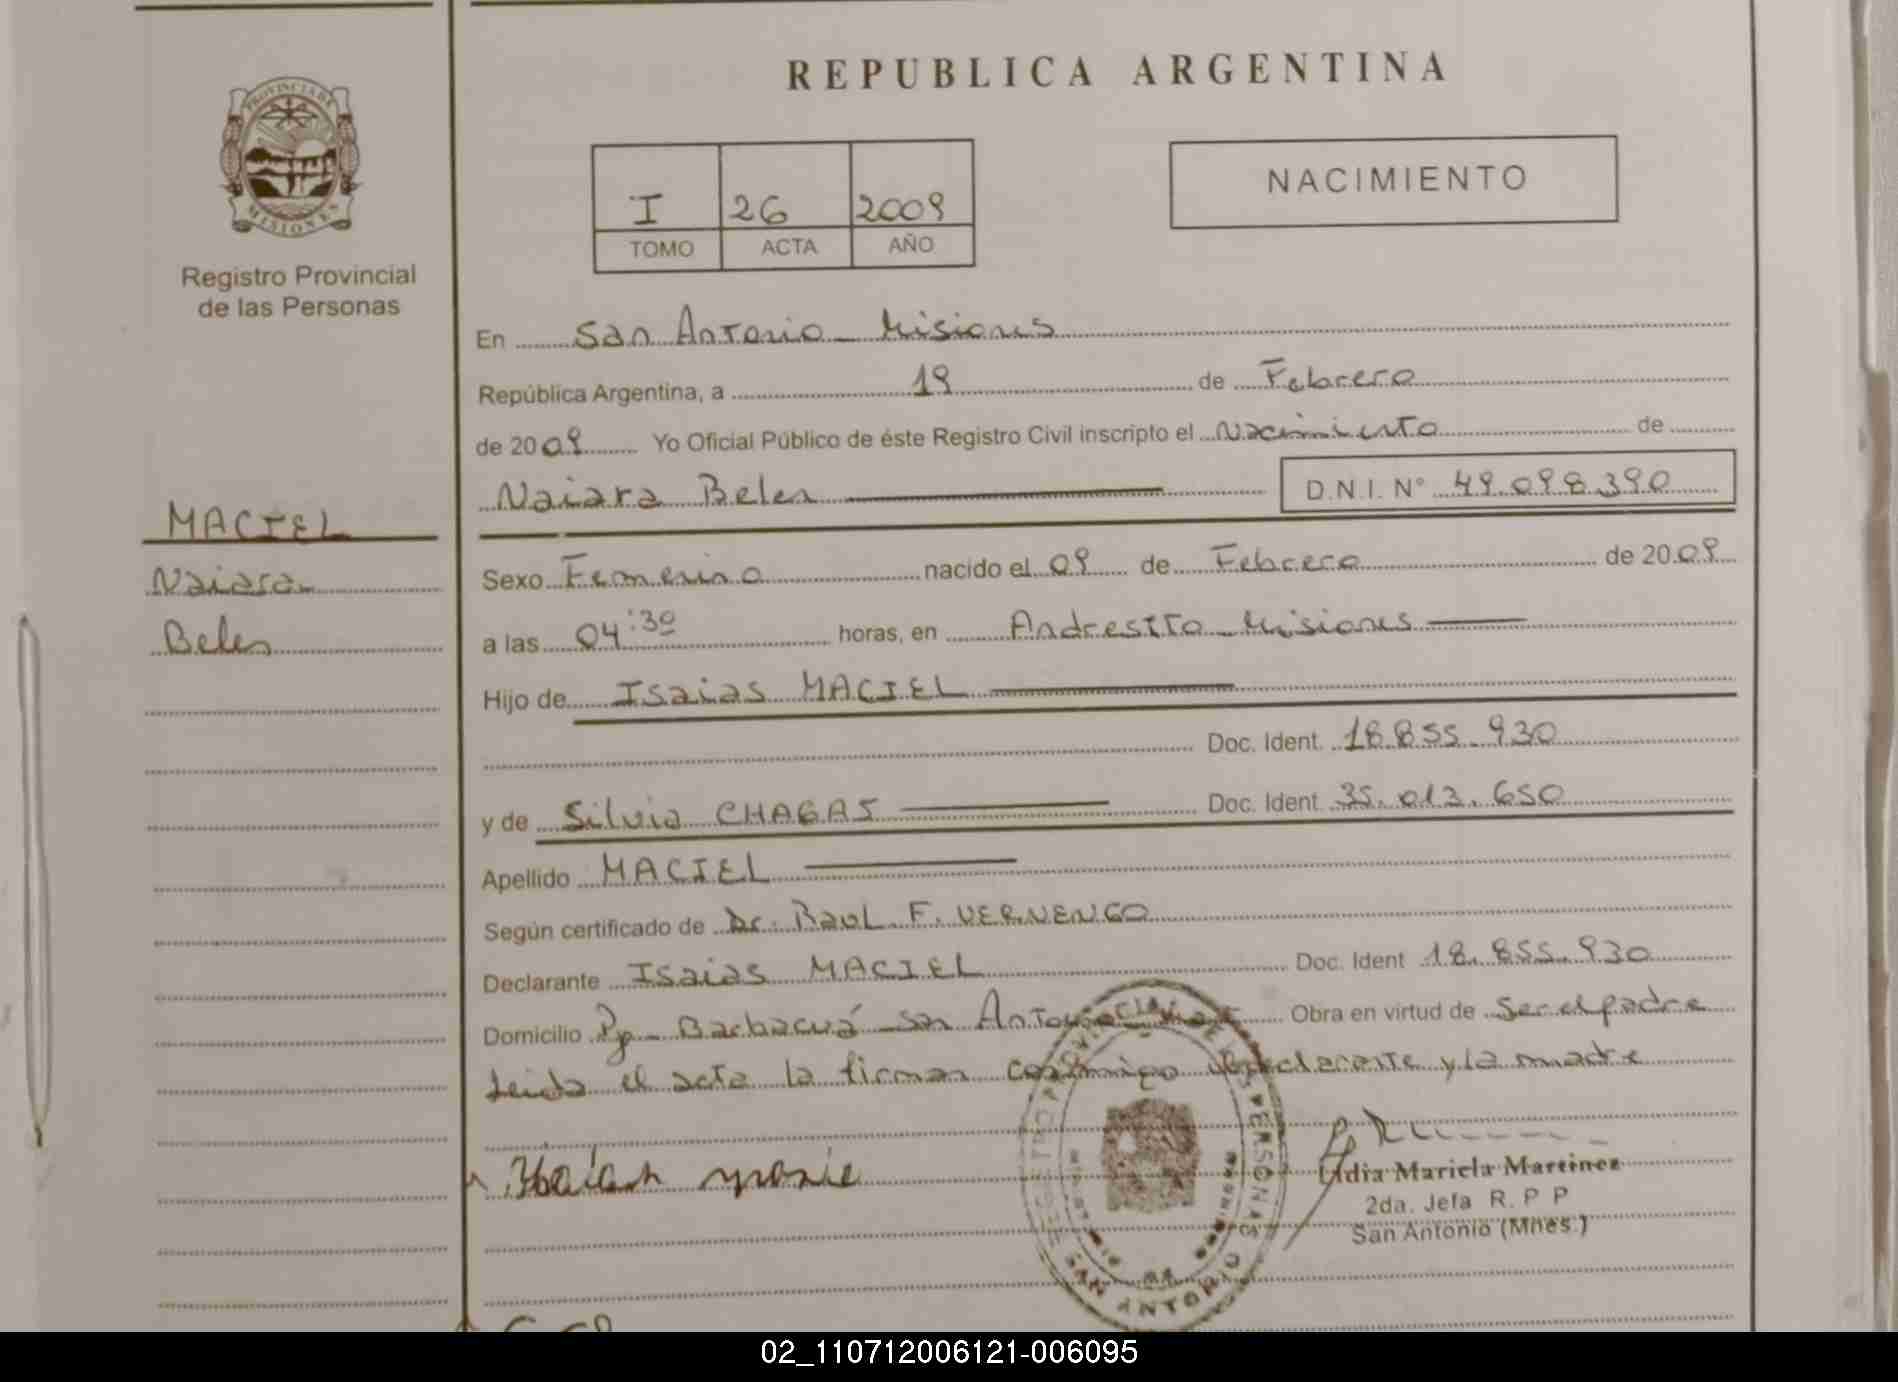 REPUBLICA ARGENTINA
PROVINCIA DE
MISIONES
Registro Provincial
de las Personas
NACIMIENTO
I 26 2009
TOMO ACTA AÑO
En San Antonio - Misiones
República Argentina, a 19 de Febrero
de 2009 Yo Oficial Público de éste Registro Civil inscripto el Nacimiento de
Naiara Belen D.N.I. Nº 49.098.390
MACIEL
Naiara
Belen
Sexo Femenino nacido el 09 de Febrero de 2009
a las 04:30 horas, en Andresito - Misiones
Hijo de Isaias MACIEL
Doc. Ident. 18.855.930
y de Silvia CHAGAS Doc. Ident. 35.013.650
Apellido MACIEL
Según certificado de Dr. Raul F. VERNENGO
Declarante Isaias MACIEL Doc. Ident 18.855.930
Domicilio Pje Barbacuá - San Antonio Obra en virtud de Ser el padre
Leida el acta la firman conmigo declarante y la madre
REGISTRO PROVINCIAL DE LAS PERSONAS
SAN ANTONIO
Lidia Mariela Martinez
2da. Jefa R. P P
San Antonio (Mnes.)
02_110712006121-006095